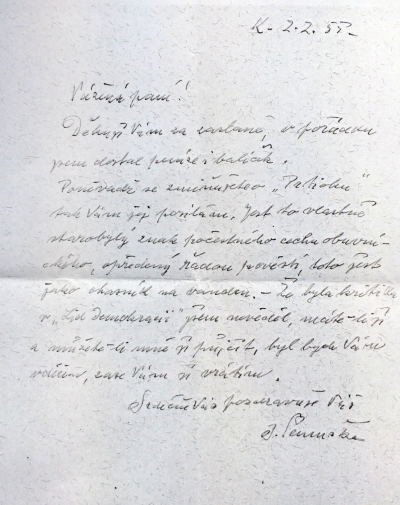 K- 2.2.55-
Vážená paní!
Děkuji Vám za zaslané, v pořádku
jsem dostal peníze i balíček.
Poněvadž se zmiňujete o
tak Vám jej posílám. Jest to vlastně
starobylý znak počestného cechu obuvni-
ckého, opředený řadou pověstí, toto jest
jako na . - Že byla kritika
v „Lid. demokracii" jsem nevěděl, máte-li ji
a můžete-li mně ji půjčit, byl bych Vám
vděčen, zase Vám ji vrátím.
Srdečně Vás pozdravuje Váš
J.